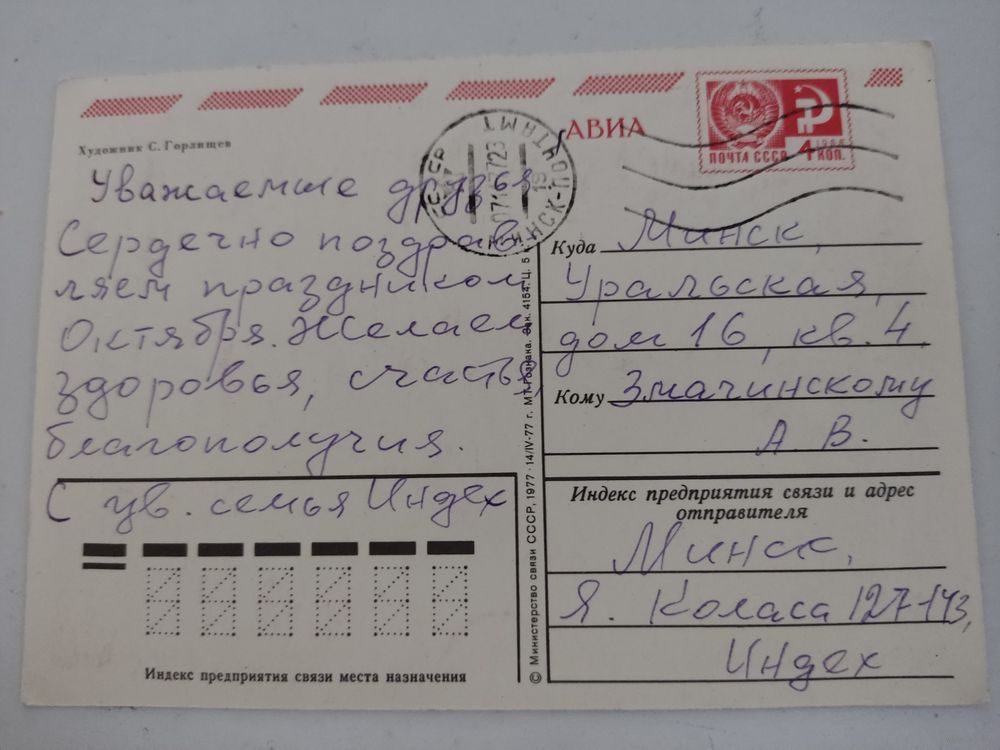 АВИА
ПОЧТА СССР 4 КОП.
Художник С. Горлищев
Уважаемые друзья
Сердечно поздрав
ляем праздником
Октября. Желаем
здоровья, счастья,
благополучия.
С ув. семья Индех
Куда Минск,
Уральская,
дом 16, кв. 4.
Кому Змачинскому
А. В.
Индекс предприятия связи и адрес
отправителя
Минск,
Я. Коласа 127-143,
Индех
Индекс предприятия связи места назначения
© Министерство связи СССР, 1977 · 14/IV-77 г. МТ Гознака. Зак. 4154. Ц. 5